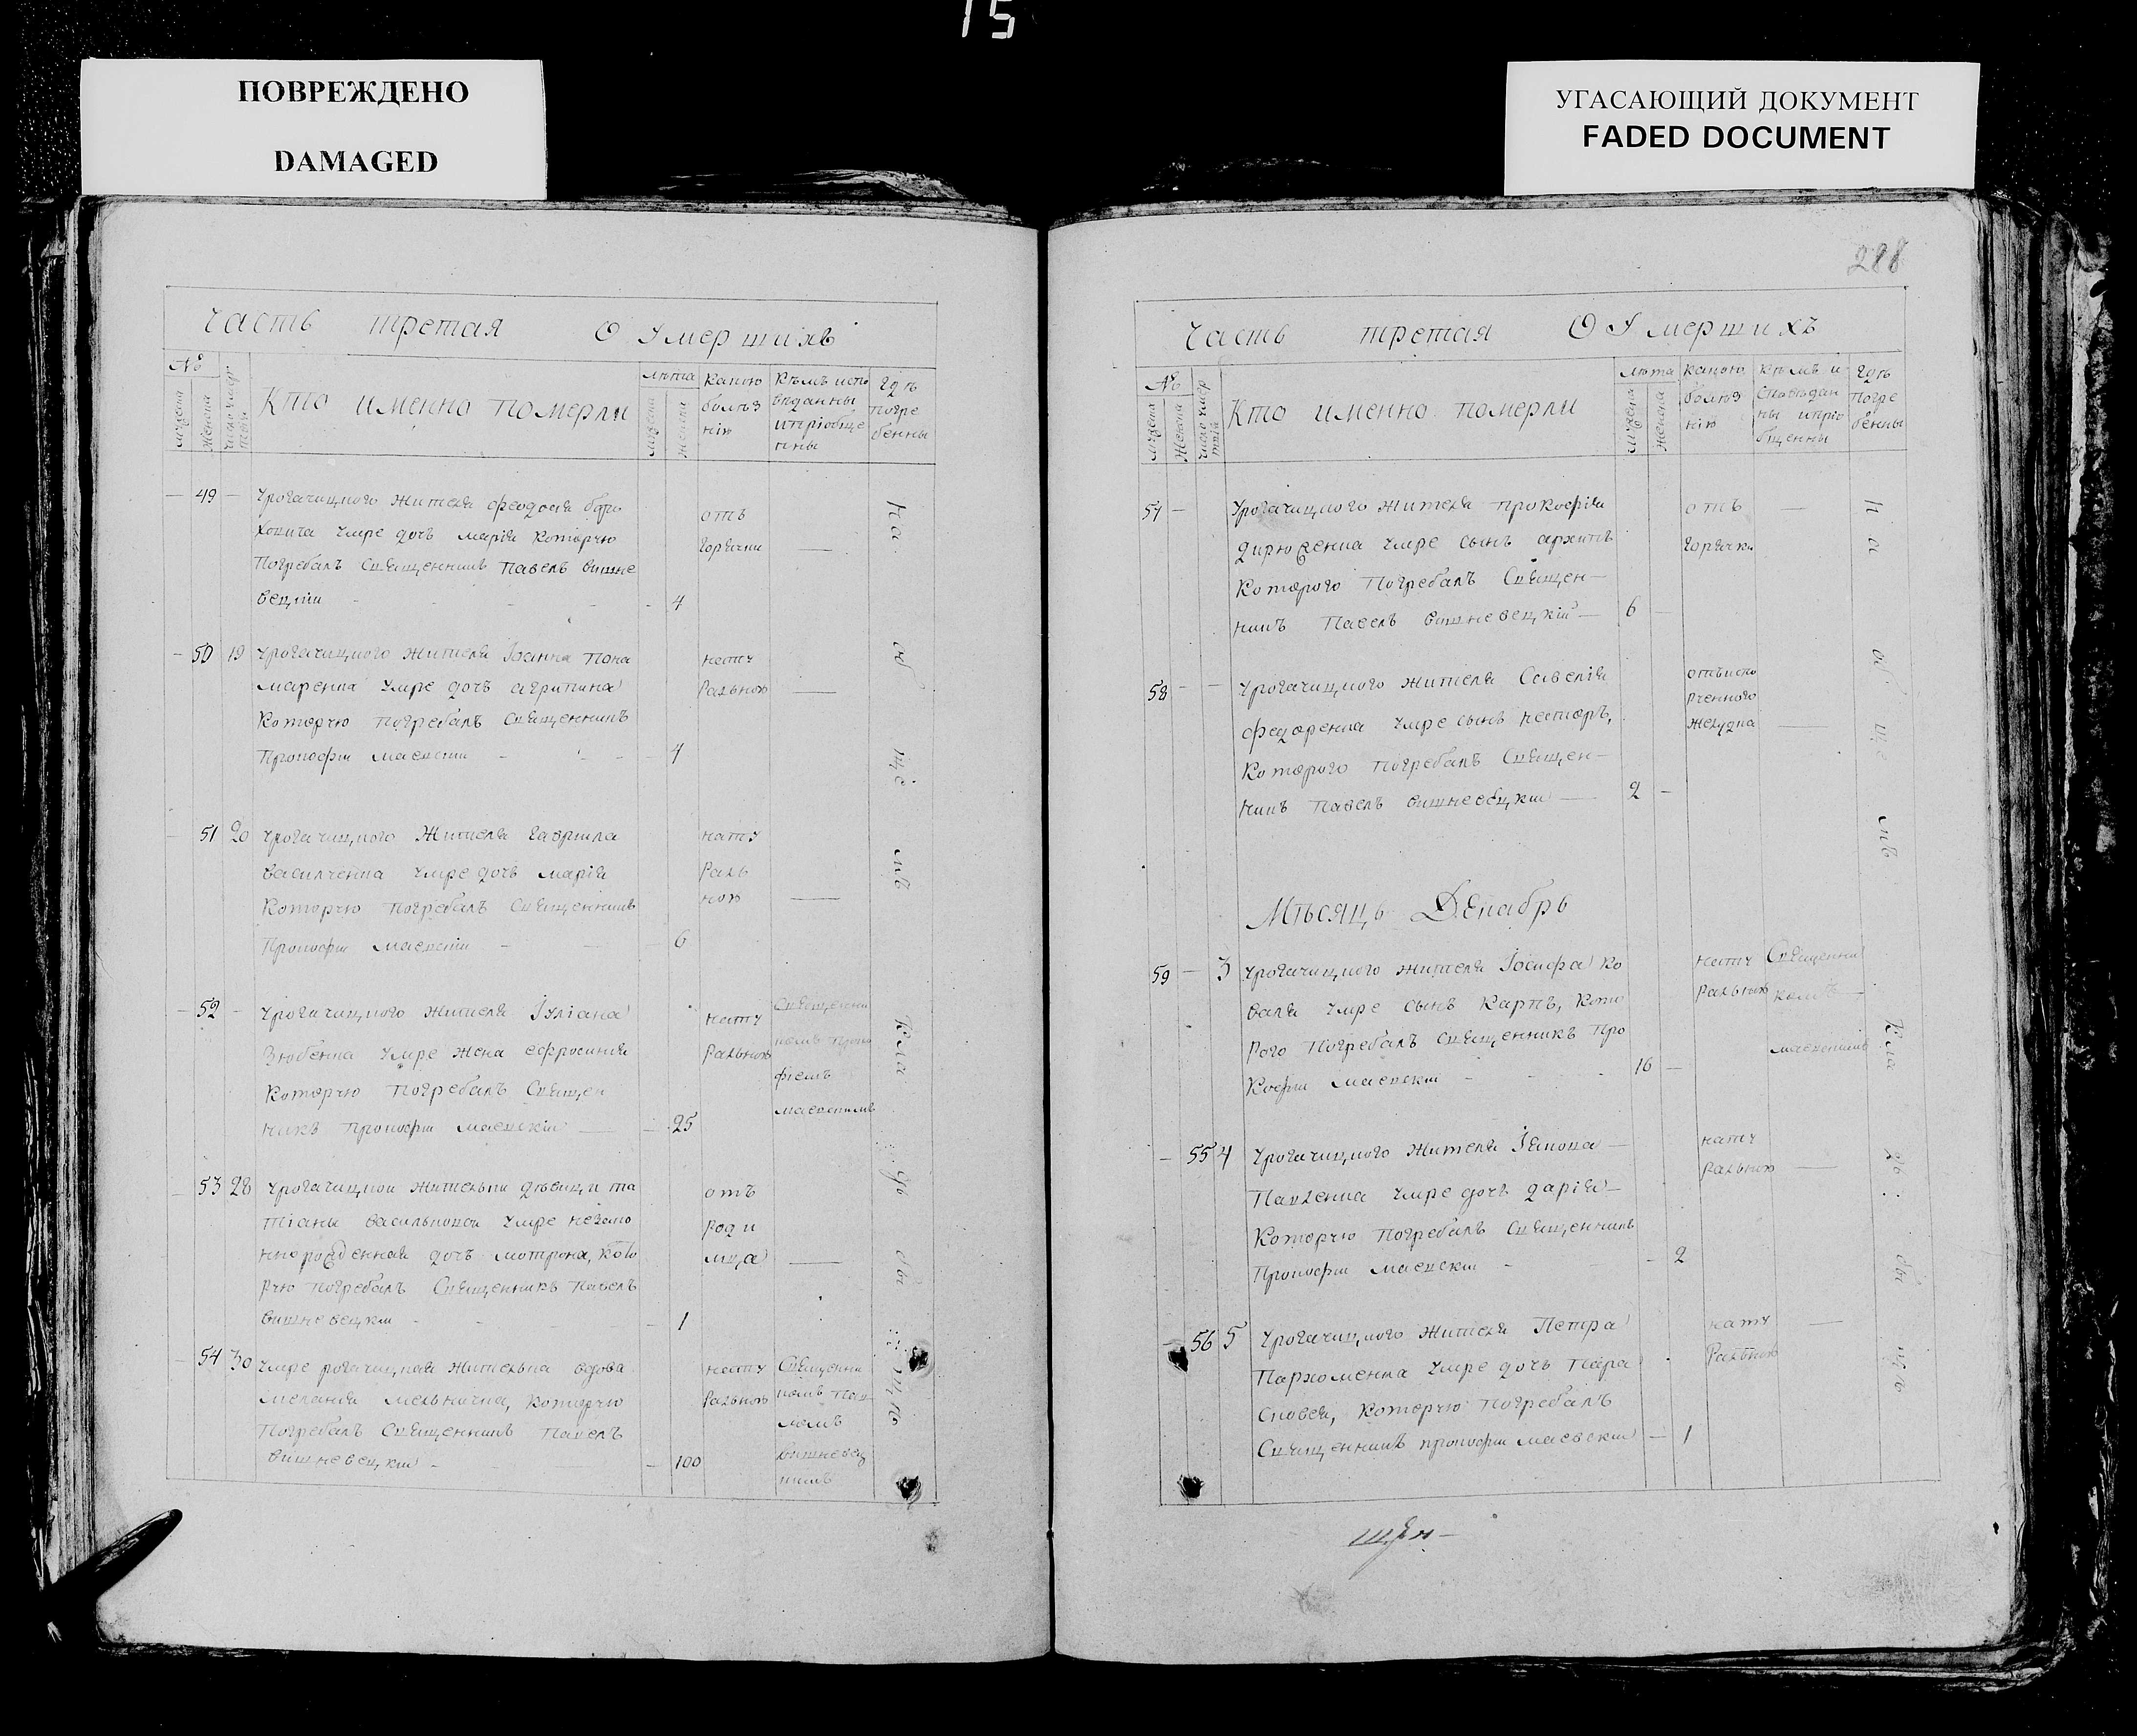 15
ПОВРЕЖДЕНО
DAMAGED
УГАСАЮЩИЙ ДОКУМЕНТ
FADED DOCUMENT
Часть третая О Умершихъ
№
мужеска
женска
Кто именно померли
лѣта
мужеска
женска
какою
болѣз
нію
Кѣмъ испо
вѣданны
ипріобще
нны
Гдѣ
погре
бенны
49
Урогачицкого жителя феодосія
умре дочь марія которую
погребалъ Священникъ павелъ вишне
вецкій
4
отъ
горячки
50 19 Урогачицкого жителя Іоанна пона
маренка умре дочь агрипина
которую погребалъ Священникъ
Прокофій маевскій
4
нату
ральною
51 20 Урогачицкого жителя гаврила
василченка умре дочь марія
которую погребалъ Священникъ
Прокофій маевскій
6
нату
раль
ною
52 Урогачицкого жителя Іуліана
Зюбенка умре жена ефросинія
которую погребалъ Священ
никъ Прокофій маевскій
25
нату
ральною
Священни
комъ Проко
фіемъ
маевскимъ
53 28 Урогачицкой жительки дѣвицы та
тіаны умре незако
ннорожденная дочь мотрона, кото
рую погребалъ Священникъ павелъ
вишневецкій
1
отъ
роди
мца
54 30 Умре рогачицкая жителька вдова
меланія которую
погребалъ Священникъ павелъ
вишневецкій
100
нату
ральною
Священни
комъ пав
ломъ
вишневец
кимъ
На об ще мъ Кла дъ би щѣ
288
Часть третая О Умершихъ
№
мужеска
женска
Кто именно померли
лѣта
мужеска
женска
какою
болѣз
нію
Кѣмъ и
споведан
ны иприо
бщенны
Гдѣ
погре
бенны
57 Урогачицкого жителя прокофія
умре сынъ архипъ
которого погребалъ Священ-
никъ павелъ вишневецкій
6
отъ
горячки
58 Урогачицкого жителя Савелія
федоренка умре сынъ несторъ,
которого погребалъ Священ-
никъ павелъ вишневецкій
2
отъиспо
рченного
желудка
Мѣсяцъ Декабрь
59 3 Урогачицкого жителя Іосифа ко
валя умре сынъ карпъ, кото
рого погребалъ Священникъ про
кофій маевскій
16
нату
ральною
Священни
комъ
маевскимъ
55 4 Урогачицкого жителя Іякова
Павленка умре дочь дарія
которую погребалъ Священникъ
Прокофій маевскій
2
нату
ральною
56 5 Урогачицкого жителя Петра
Пархоменка умре дочь пара
сковея, которую погребалъ
Священникъ прокофій маевскій
1
нату
ральною
На об ще мъ Кла дъ би щѣ